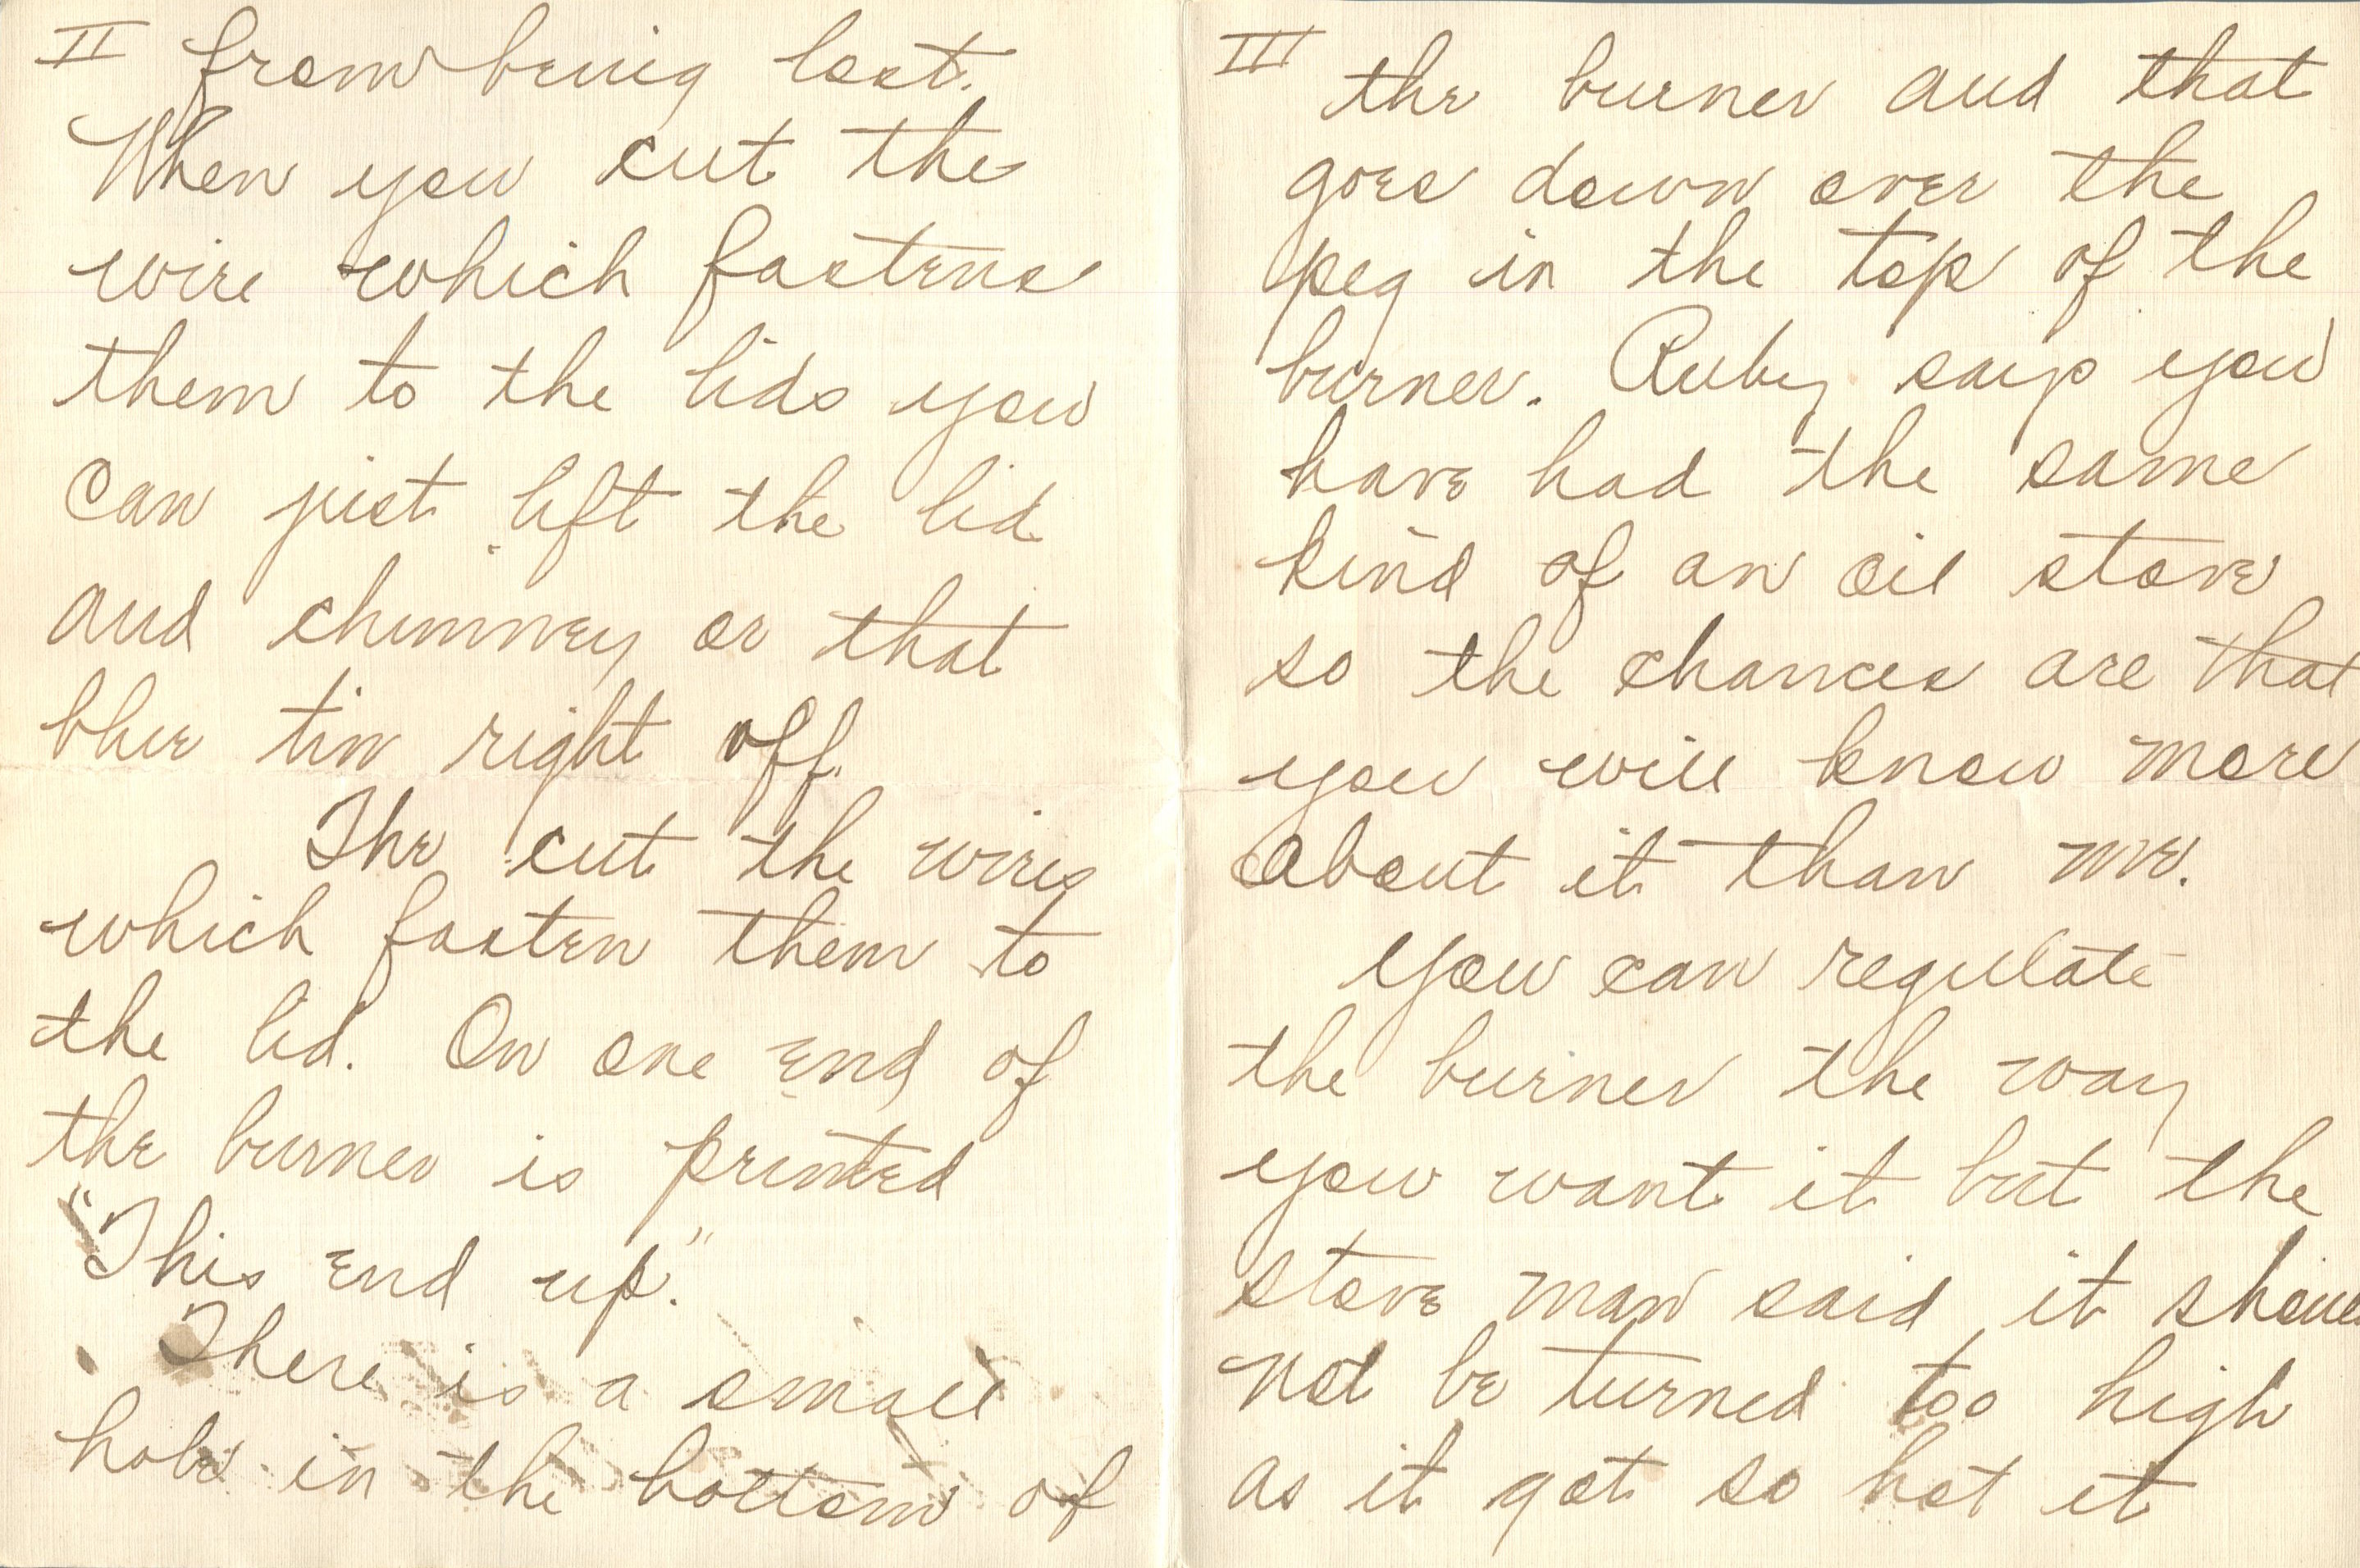 II from being lost.
When you cut the
wire which fastens
them to the lids you
can just lift the lid
and chimney or that
blue tin right off.
The cut the wires
which fasten them to
the lid. On one end of
the burner is printed
"This end up."
There is a small
hole in the bottom of
III the burner and that
goes down over the
peg in the top of the
burner. Ruby says you
have had the same
kind of an oil stove
so the chances are that
you will know more
about it than me.
You can regulate
the burner the way
you want it but the
stove man said it should
not be turned too high
as it got so hot it